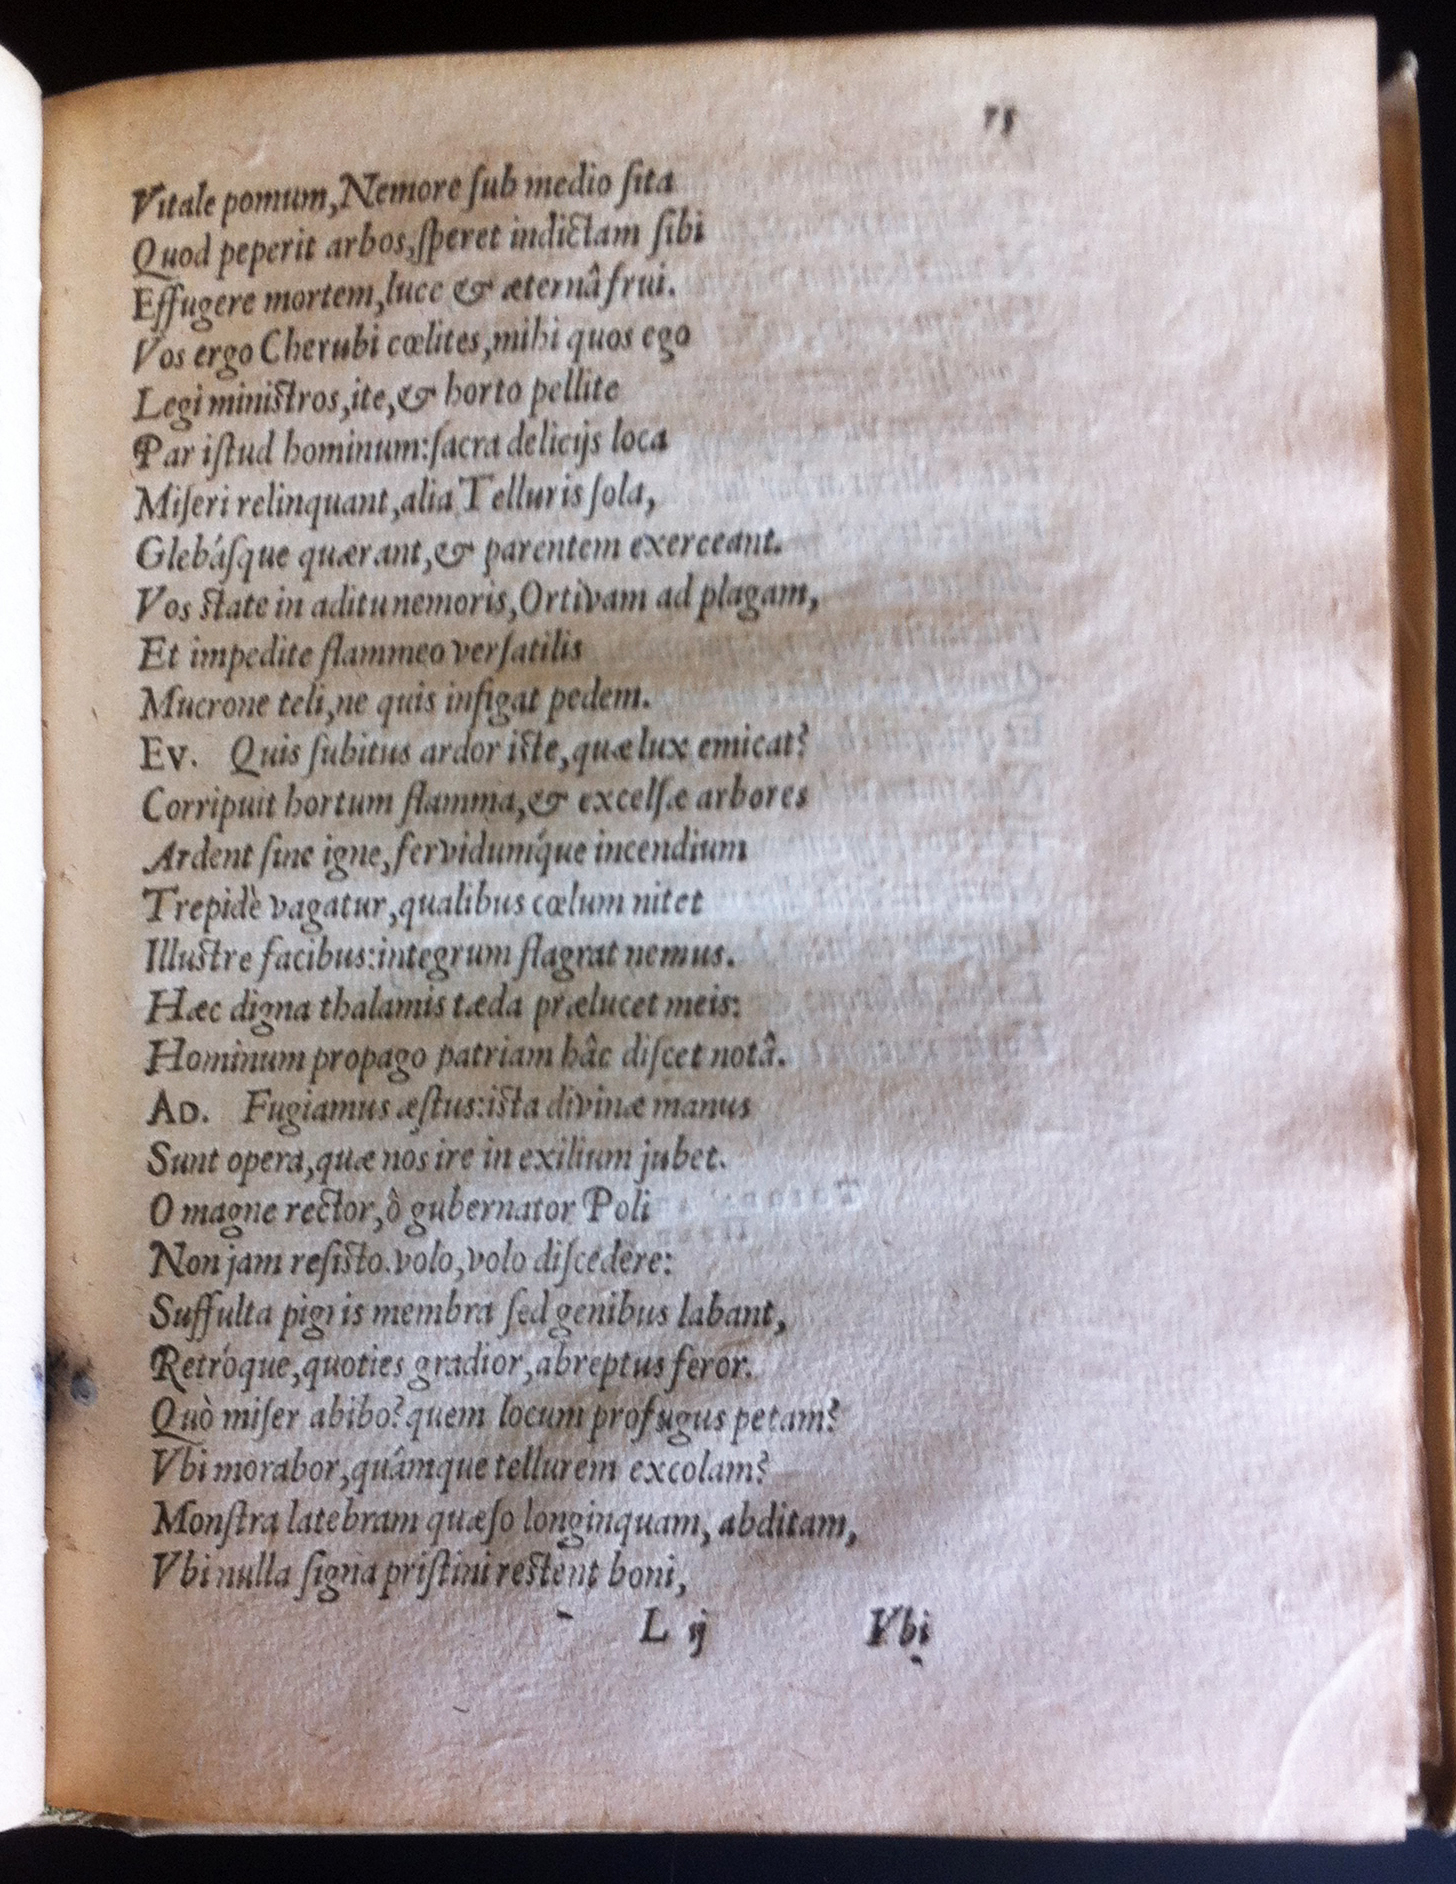 75
Vitale pomum, Nemore ſub medio ſita
Quod peperit arbos, ſperet indictam ſibi
Effugere mortem, luce & æternâ frui.
Vos ergo Cherubi cœlites, mihi quos ego
Legi miniſtros, ite, & horto pellite
Par iſtud hominum: ſacra delicijs loca
Miſeri relinquant, alia Telluris ſola,
Glebáſque quærant, & parentem exerceant.
Vos ſtate in aditu nemoris, Ortivam ad plagam,
Et impedite flammeo verſatilis
Mucrone teli, ne quis infigat pedem.
Ev. Quis ſubitus ardor iſte, quæ lux emicat?
Corripuit hortum flamma, & excelſæ arbores
Ardent ſine igne, fervidumq́ue incendium
Trepidè vagatur, qualibus cœlum nitet
Illuſtre facibus: integrum flagrat nemus.
Hæc digna thalamis tæda prælucet meis:
Hominum propago patriam hâc diſcet notâ.
Ad. Fugiamus æſtus: iſta divinæ manus
Sunt opera, quæ nos ire in exilium jubet.
O magne rector, ô gubernator Poli
Non jam reſiſto. volo, volo diſcedere:
Suffulta pigris membra ſed genibus labant,
Retróque, quoties gradior, abreptus feror.
Quò miſer abibo? quem locum profugus petam?
Vbi morabor, quâmque tellurem excolam?
Monſtra latebram quæſo longinquam, abditam,
Vbi nulla ſigna priſtini reſtent boni,
L ij Vbi